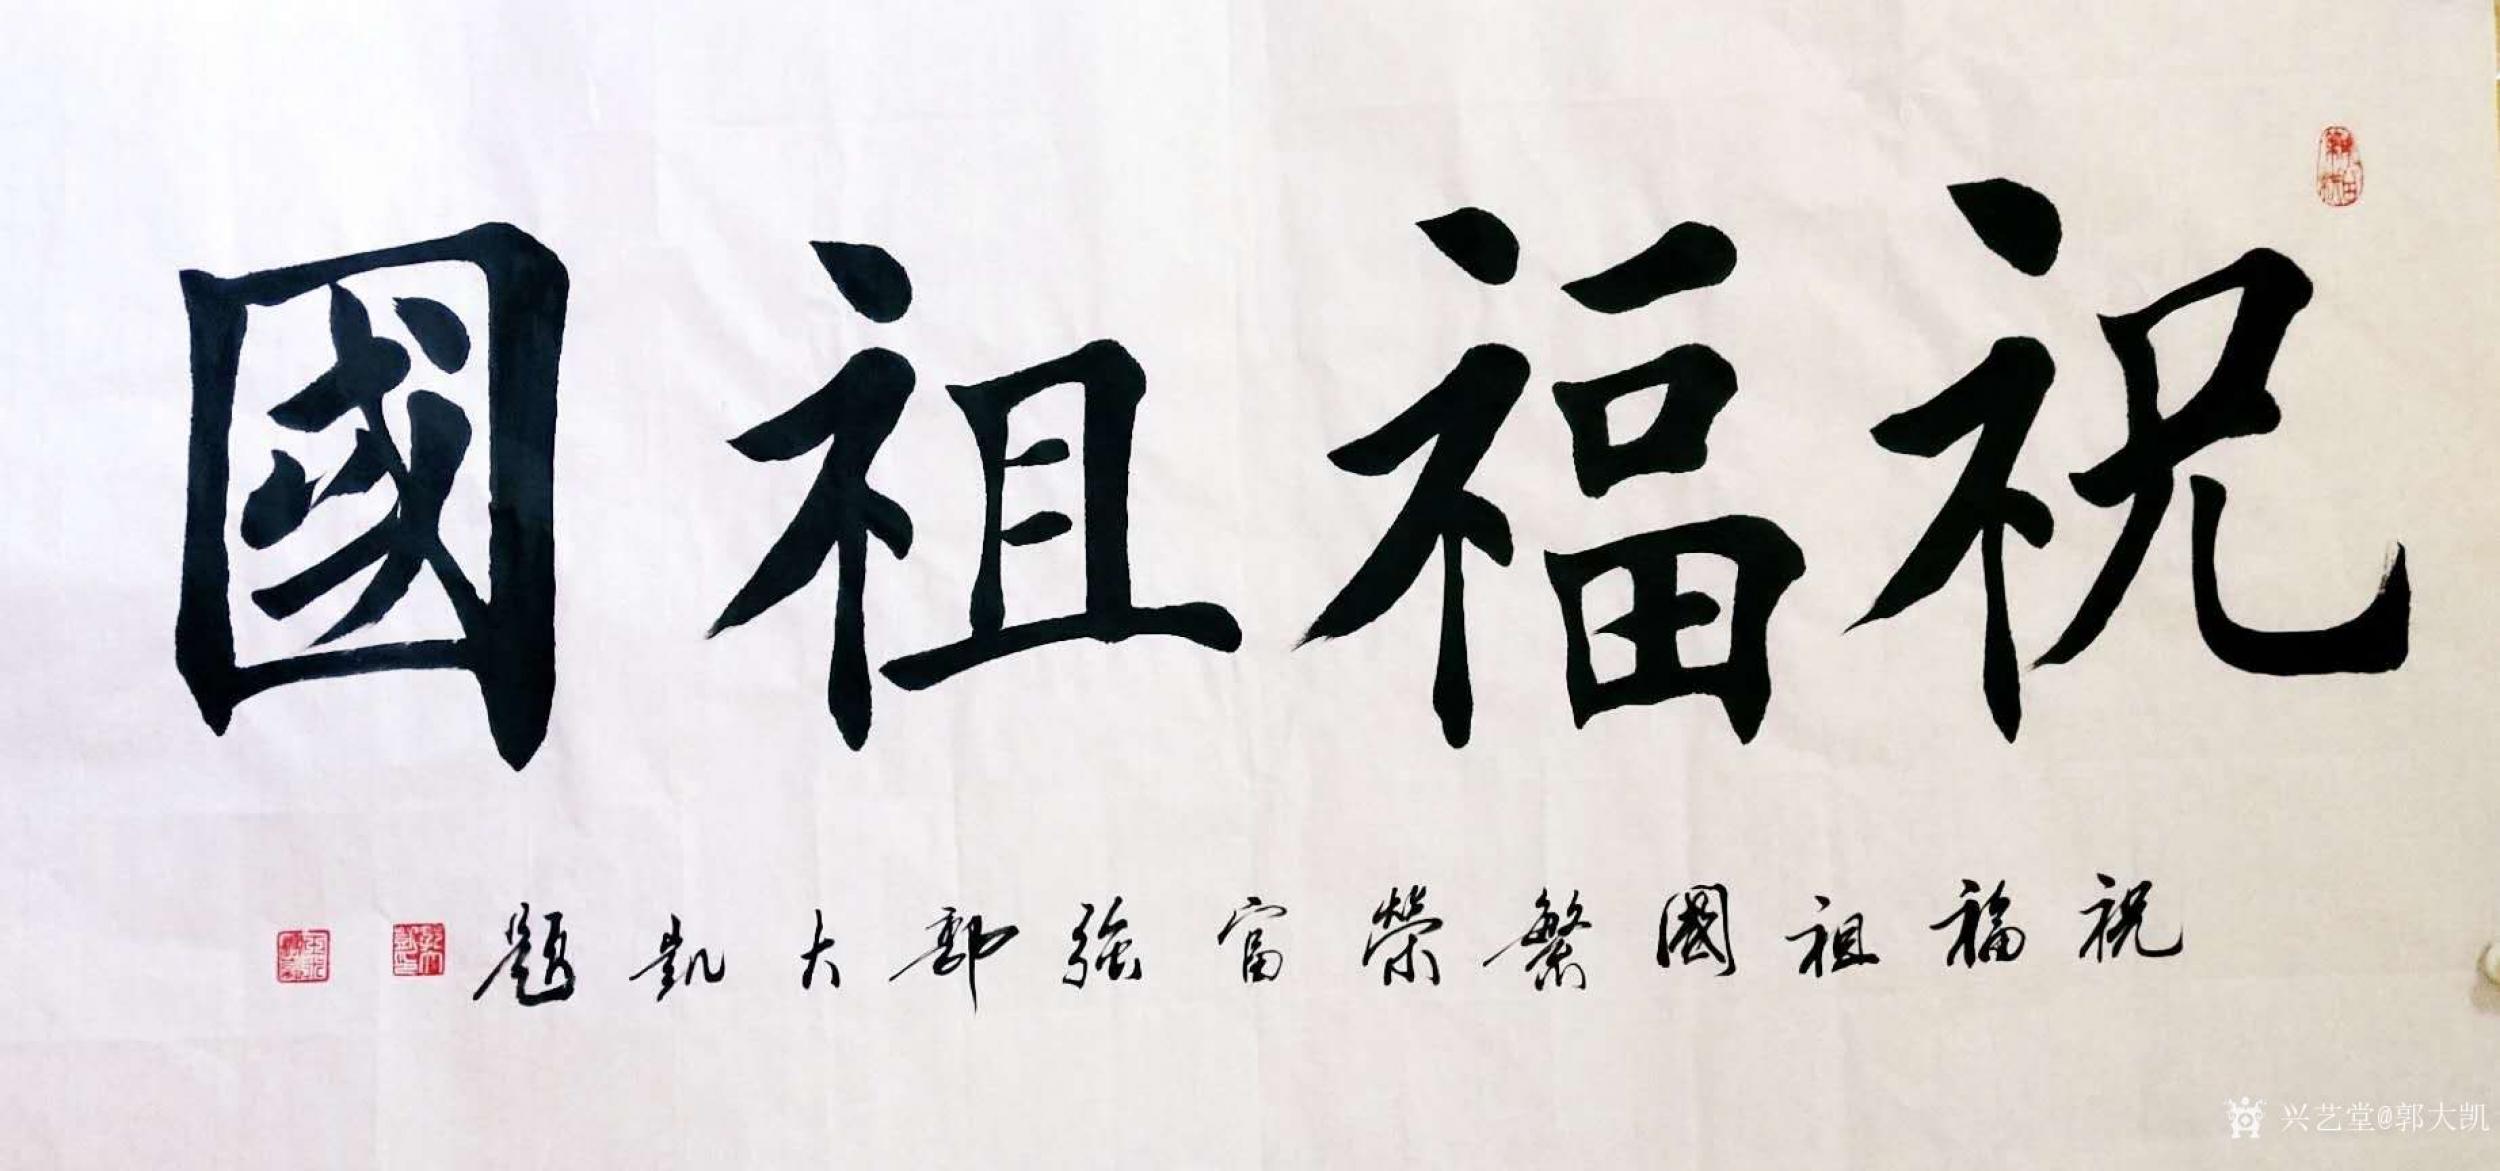 祝福祖國
祝福祖國繁榮富強郭大凱題
兴艺堂@郭大凯